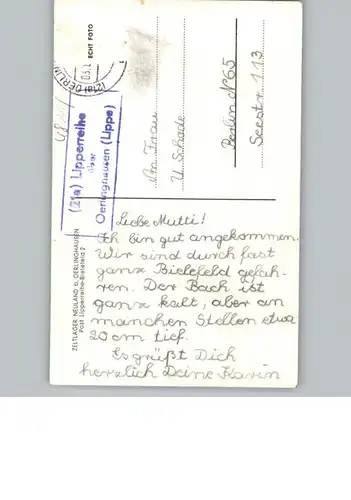 Liebe Mutti!
Ich bin gut angekommen.
Wir sind durch fast
ganz Bielefeld gefah-
ren. Der Bach ist
ganz kalt, aber an
manchen Stellen etwa
20 cm tief.
Es grüßt Dich
herzlich Deine Karin
An Frau
U. Schade
Berlin N 65
Seestr. 113
(21a) Lipperreihe
über
Oerlinghausen (Lippe)
ZELTLAGER NEULAND b. OERLINGHAUSEN
Post Lipperreihe-Bielefeld 2
ECHT FOTO
(21a) OERLIN